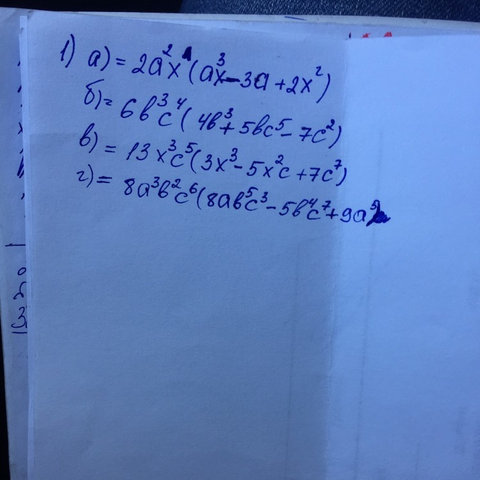 1) а) = 2a²x(ax³-3a+2x²)
б) = 6b³c⁴(4b³+5bc⁵-7c²)
в) = 13x³c⁵(3x³-5x²c+7c⁷)
г) = 8a³b²c⁶(8ab⁵c³-5b⁴c⁷+9a⁹